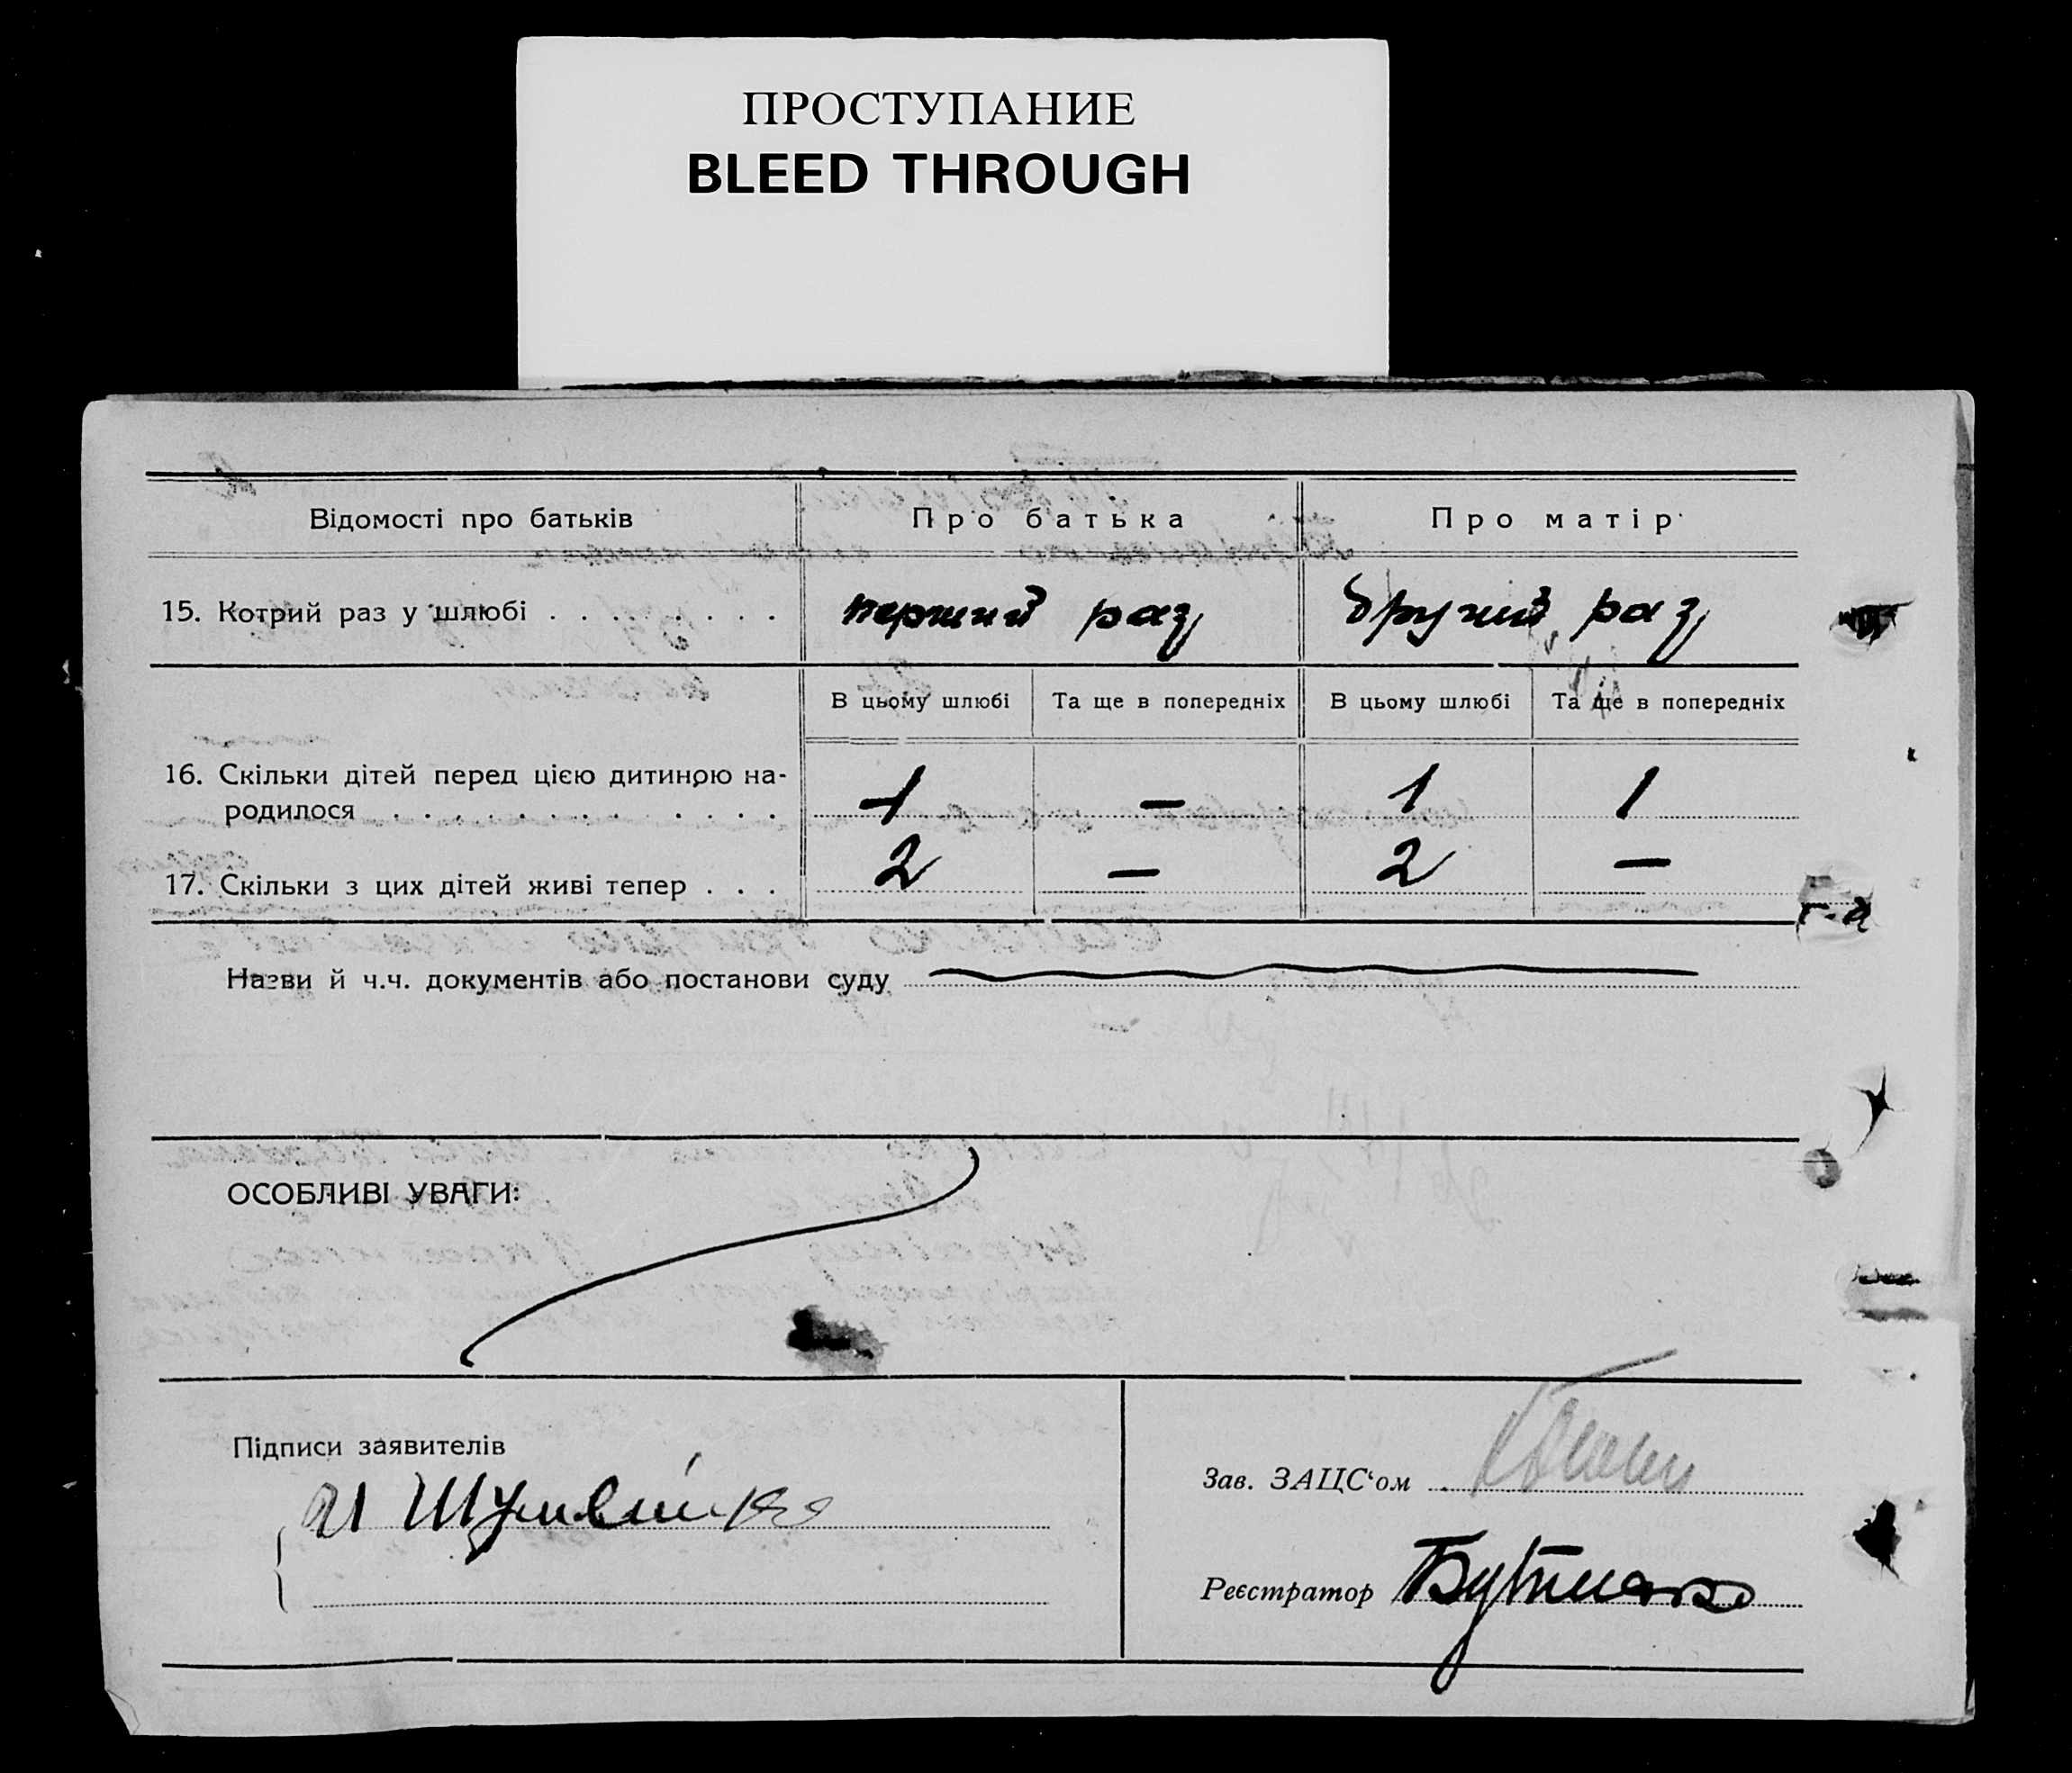 ПРОСТУПАНИЕ
BLEED THROUGH
Відомості про батьків Про батька Про матір
15. Котрий раз у шлюбі . . . . . . . . перший раз другий раз
В цьому шлюбі Та ще в попередніх В цьому шлюбі Та ще в попередніх
16. Скільки дітей перед цією дитиною на-
родилося . . . . . . . . . . . . 1 — 1 1
17. Скільки з цих дітей живі тепер . . . 2 — 2 —
Назви й ч.ч. документів або постанови суду
ОСОБЛИВІ УВАГИ:
Підписи заявителів
Зав. ЗАЦС'ом
Реєстратор